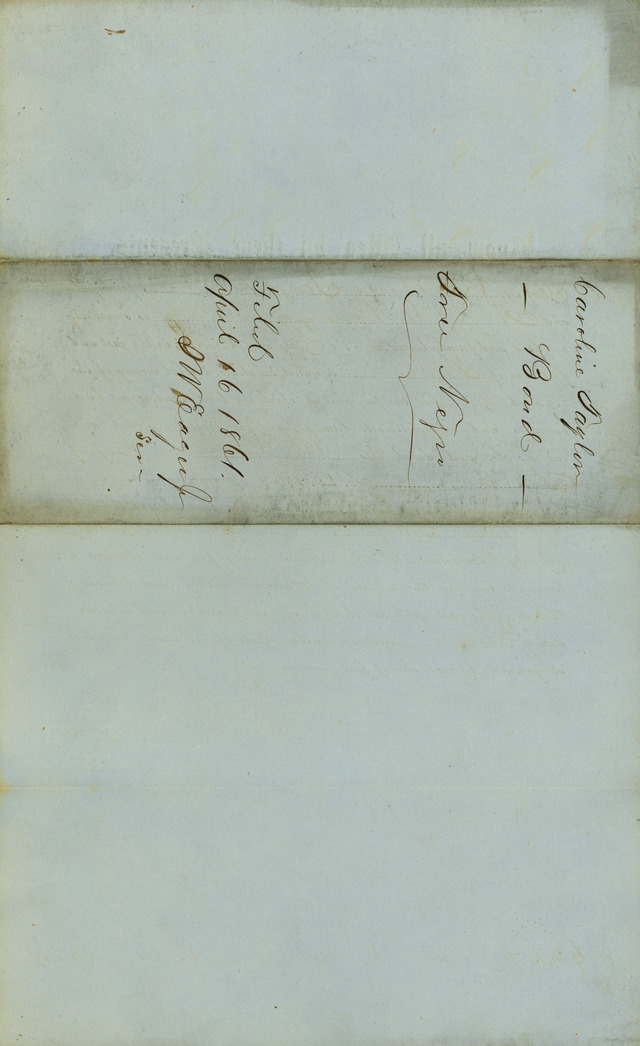 Caroline Taylor
— Bond —
Free Negro
Filed
April 16 1861.